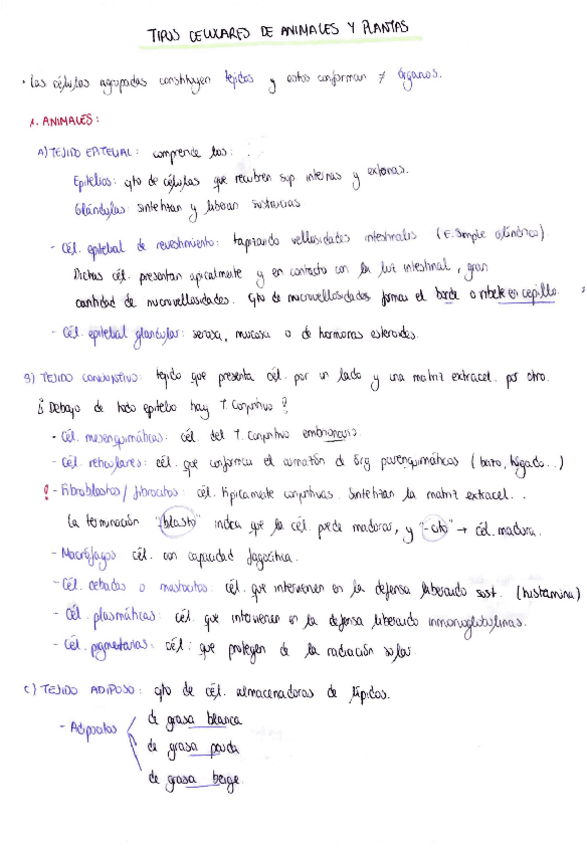 TIPOS CELULARES DE ANIMALES Y PLANTAS
· Las células agrupadas constituyen tejidos y estos conforman ≠ órganos.
1. ANIMALES:
A) TEJIDO EPITELIAL: comprende los:
Epitelios: cjto de células que recubren sup internas y externas.
Glándulas: sintetizan y liberan sustancias
- Cél. epitelial de revestimiento: tapizando vellosidades intestinales (E. Simple cilíndrico).
Dichas cél. presentan apicalmente y en contacto con la luz intestinal, gran
cantidad de microvellosidades. Cjto de microvellosidades forman el borde o ribete en cepillo.
- Cél. epitelial glandular: serosa, mucosa o de hormonas esteroides.
B) TEJIDO CONJUNTIVO: tejido que presenta cél. por un lado y una matriz extracel. por otro.
¿Debajo de todo epitelio hay T. Conjuntivo?
· Cél. mesenquimáticas: cél. del T. Conjuntivo embrionario.
- Cél. reticulares: cél. que conforman el armazón de órg parenquimáticos (bazo, hígado...)
! - Fibroblastos / fibrocitos: cél. típicamente conjuntivas. Sintetizan la matriz extracel..
La terminación "blasto" indica que la cél. puede madurar, y "-cito" → cél. madura.
- Macrófagos cél. con capacidad fagocítica.
- Cél. cebadas o mastocitos: cél. que intervienen en la defensa liberando sust. (histamina)
- Cél. plasmáticas: cél. que intervienen en la defensa liberando inmunoglobulinas.
- Cél. pigmentarias: cél. que protegen de la radiación solar.
C) TEJIDO ADIPOSO: cjto de cél. almacenadoras de lípidos.
- Adipocitos
de grasa blanca
de grasa parda
de grasa beige.